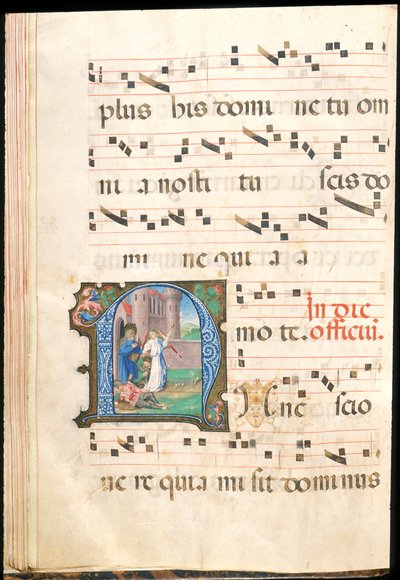 plus his domi ne tu om
ni a nosti tu scis do
mi ne qui a a
In die
mo te. officiū.
N unc scio
ve re quia mi sit dominus